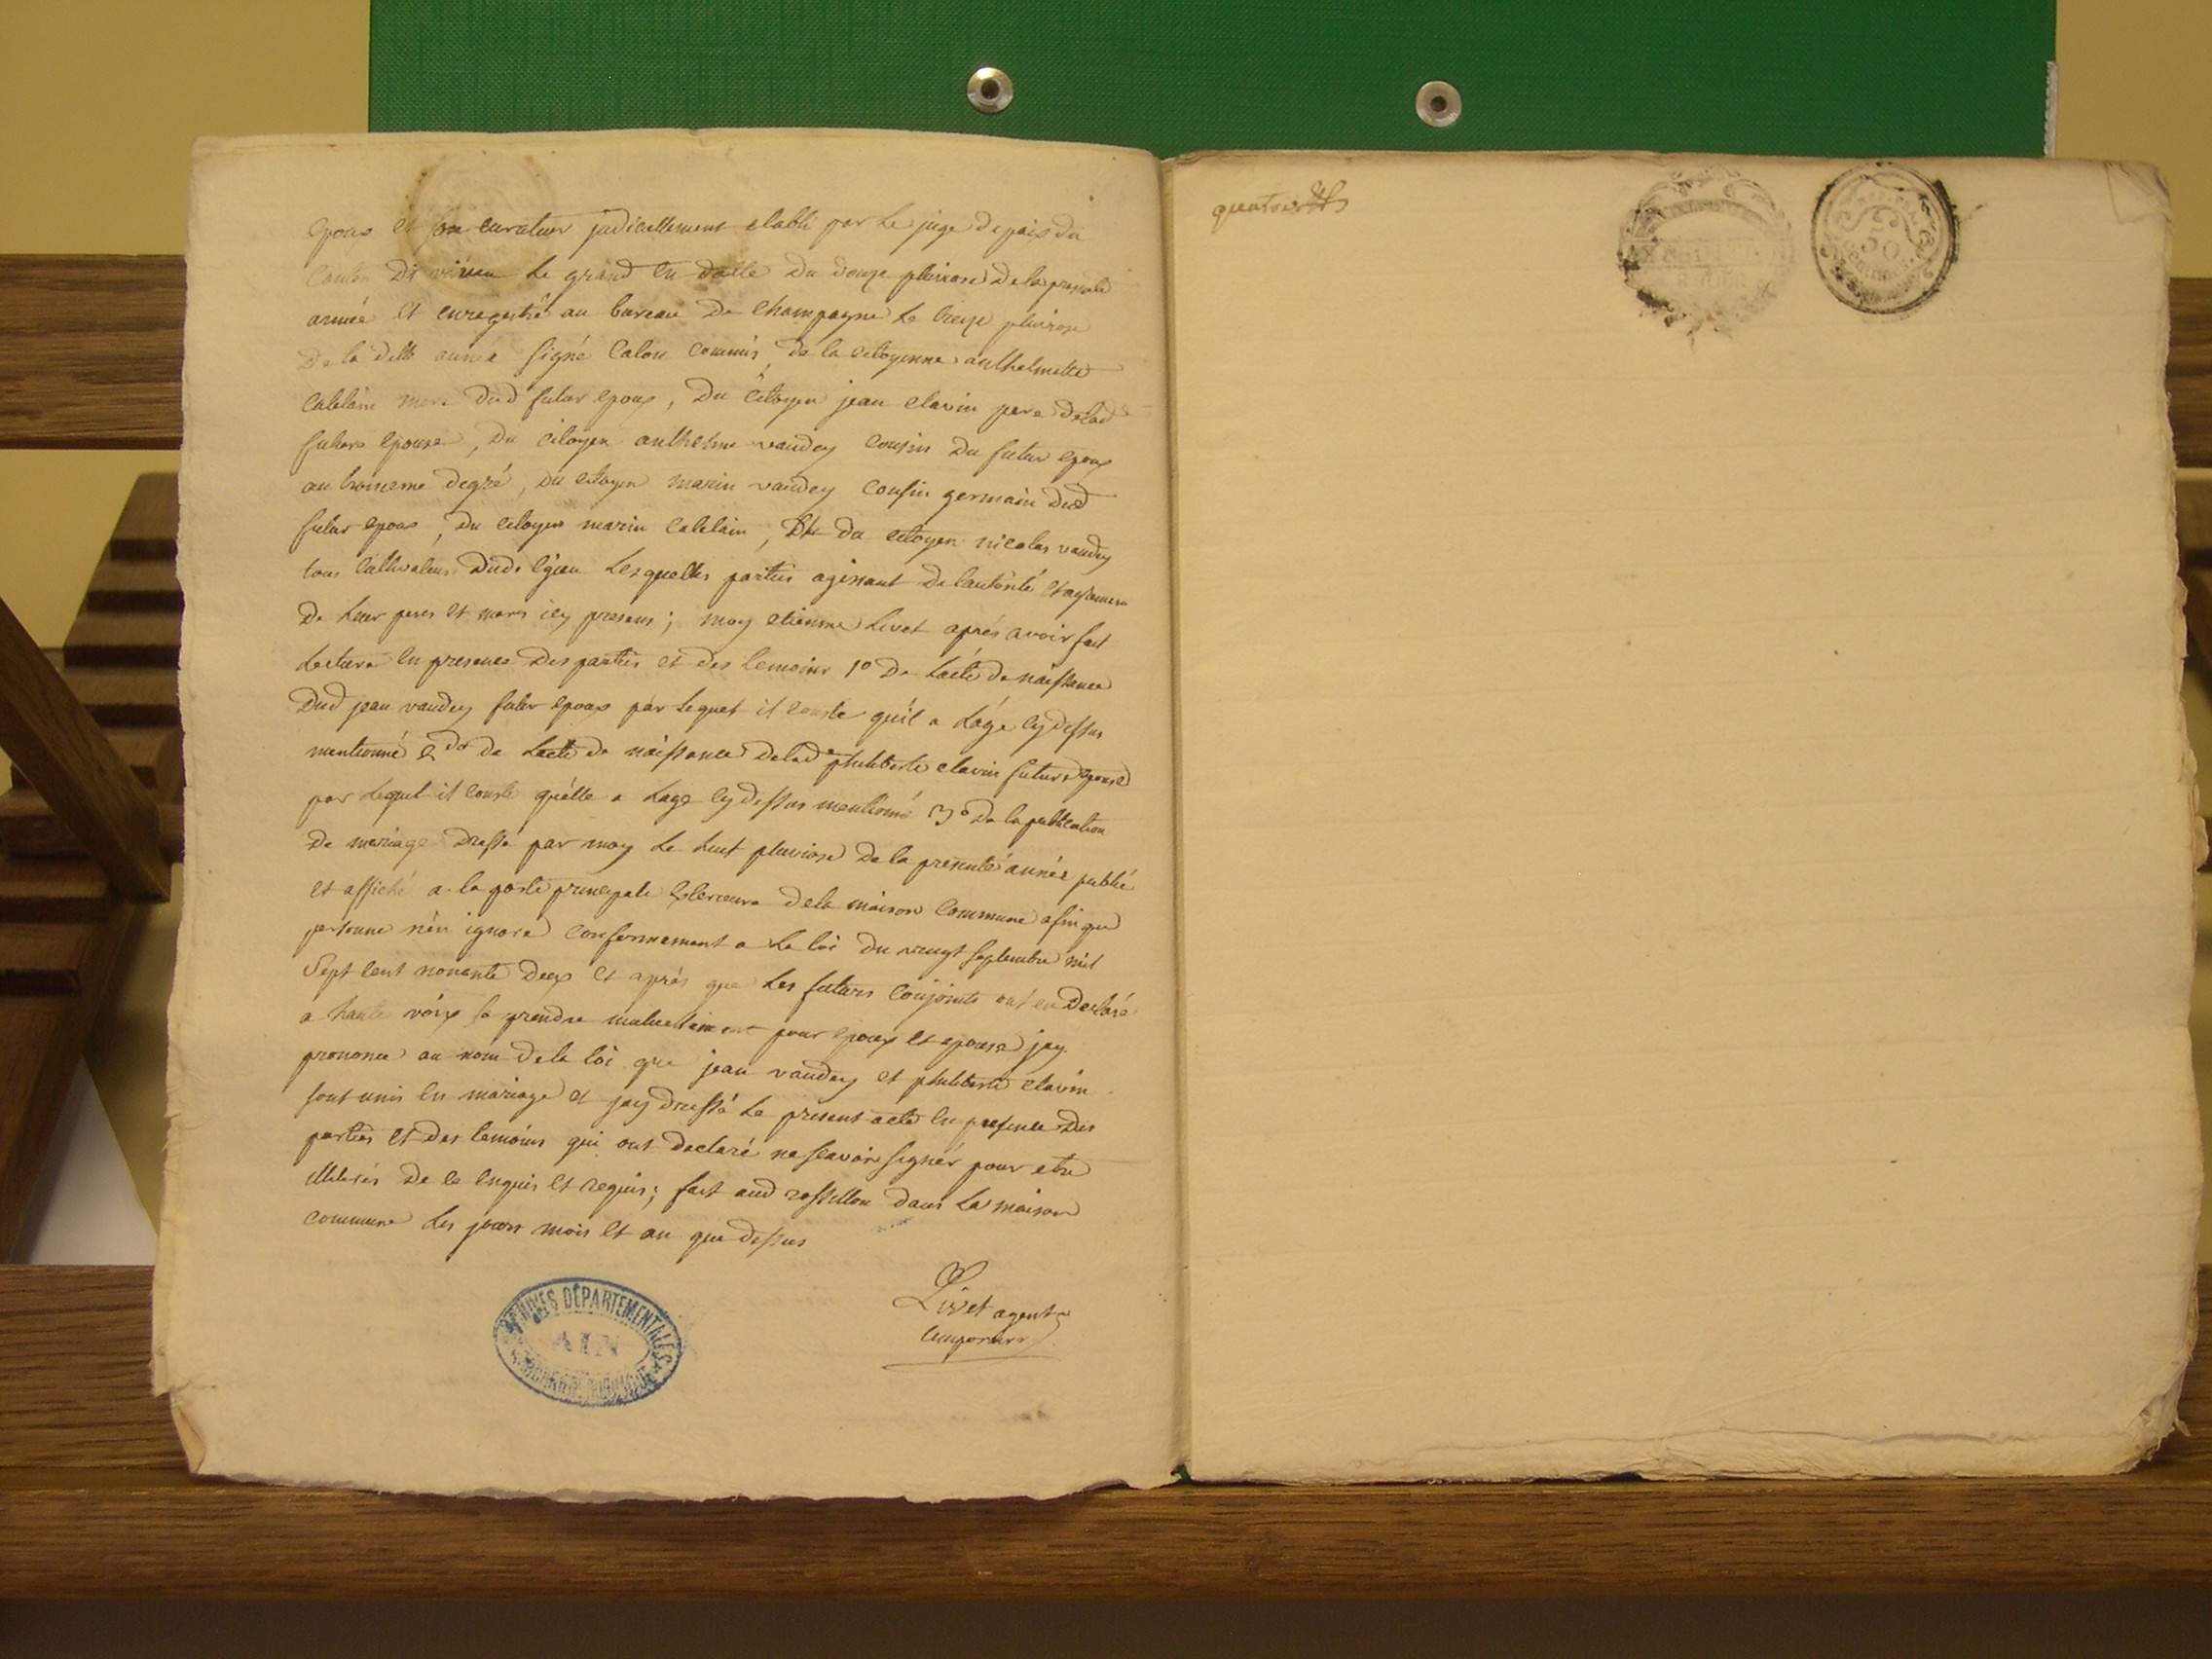 epoux et son curateur judicellement etabli par Le juge de paix du
Canton De virieu Le grand en datte Du douze pluviose De la presente
année et enregistré au bureau De Champagne Le treize pluviose
De la ditte année signé Calou commis, De la citoyenne anthelmette
Catelain mere dud futur epoux, Du Citoyen jean clavin pere de lad
future epouse, Du citoyen anthelme vaudey cousin Du futur epoux
au troisieme degré, Du citoyen marin vaudey cousin germain dud
futur epoux, Du citoyen marin Catelain, Et Du citoyen nicolas vaudey
tous Cultivateurs Lesquelles parties agissant De lautorité
De Leur peres et meres icy presens; moy etienne Livet après avoir fait
Lecture en presence Des parties et des temoins 1º De Lacte de naissance
Dud jean vaudey futur epoux par Lequel il conste qu'il a Láge cy dessus
mentionné 2do De Lacte De naissance De lad philiberte clavin future epouse
par Lequel il conste quélle a Lage cy dessus mentionné 3º De la publication
De mariage Dressé par moy Le huit pluviose De la presente année publié
et affiché a la porte principale Exterieure De la maison Commune afin que
personne n'en ignore Conformement a La loi Du vingt septembre mil
Sept cent nonante Deux et après que Les futurs Conjoints ont eu Declaré
a haute voix se prendre mutuellement pour epoux et epouse jay
prononcé au nom De la loi que jean vaudey et philiberte clavin
sont unis en mariage et jay Dressé Le present acte en presence Des
parties et Des temoins qui ont declaré ne scavoir signér pour etre
illiterés De ce enquis et requis; fait aud rossillon dans La maison
commune Les jours mois et an que dessus
Livet agent
ARCHIVES DÉPARTEMENTALES
AIN
50
CENTIMES